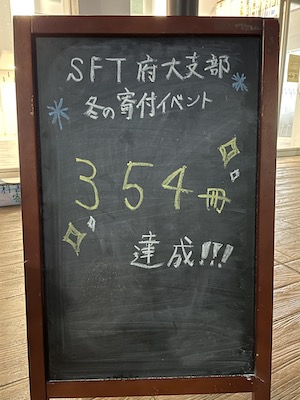 SFT府大支部
冬の寄付イベント
354冊
達成!!!